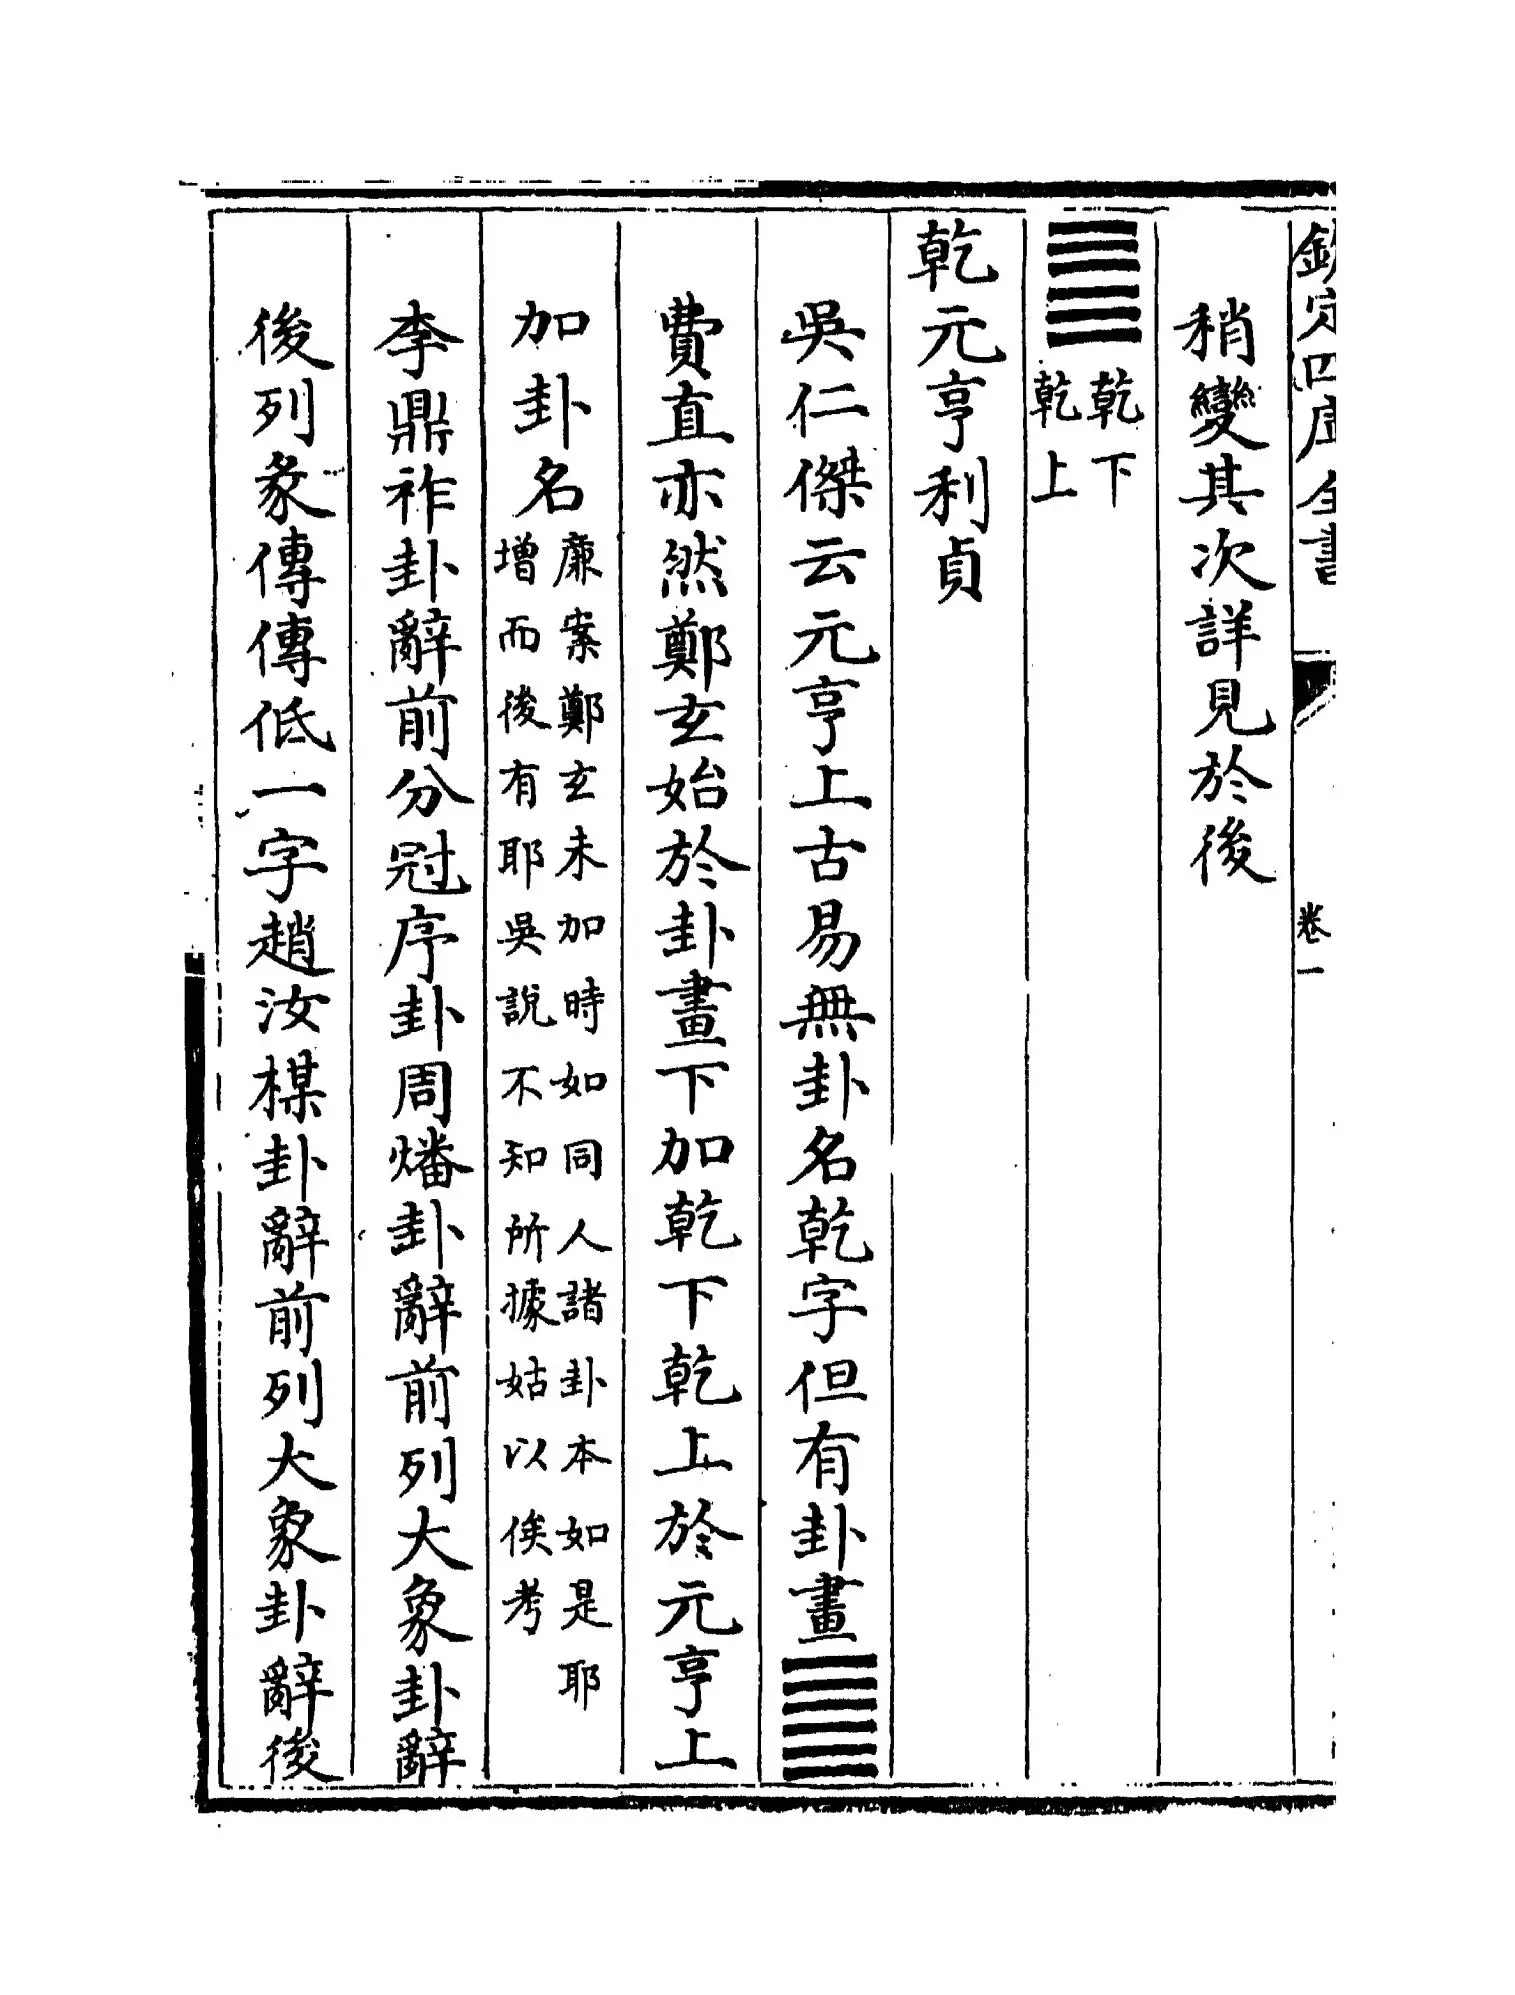 欽定四庫全書
卷一
稍變其次詳見於後
䷀乾下乾上
乾元亨利貞
吳仁傑云元亨上古易無卦名乾字但有卦畫䷀
費直亦然鄭玄始於卦畫下加乾下乾上於元亨上
加卦名廉案鄭玄未加時如同人諸卦本如是耶
增而後有耶吳說不知所據姑以俟考
李鼎祚卦辭前分冠序卦周燔卦辭前列大象卦辭
後列彖傳傳低一字趙汝楳卦辭前列大象卦辭後